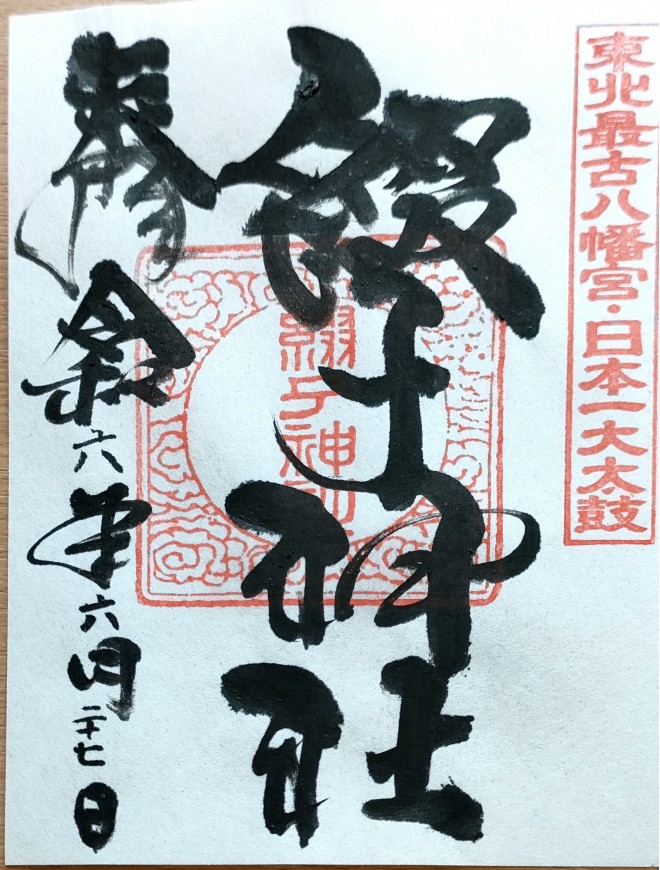 東北最古八幡宮・日本一大太鼓
綴子神社
奉拝 令和六年六月二十七日